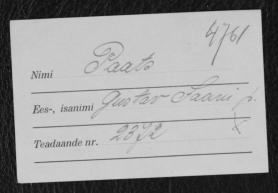 4761
Nimi Paats
Ees-, isanimi Gustav Jaani p.
Teadaande nr. 2372